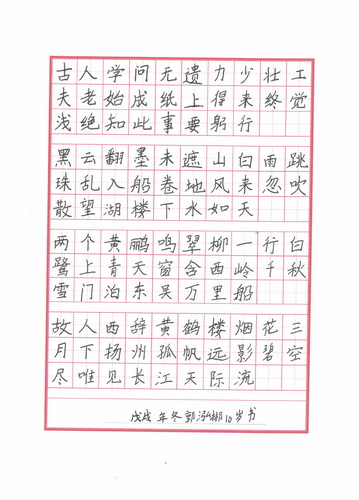 古人学问无遗力少壮工
夫老始成纸上得来终觉
浅绝知此事要躬行
黑云翻墨未遮山白雨跳
珠乱入船卷地风来忽吹
散望湖楼下水如天
两个黄鹂鸣翠柳一行白
鹭上青天窗含西岭千秋
雪门泊东吴万里船
故人西辞黄鹤楼烟花三
月下扬州孤帆远影碧空
尽唯见长江天际流
戊戌年冬郭泓彬10岁书